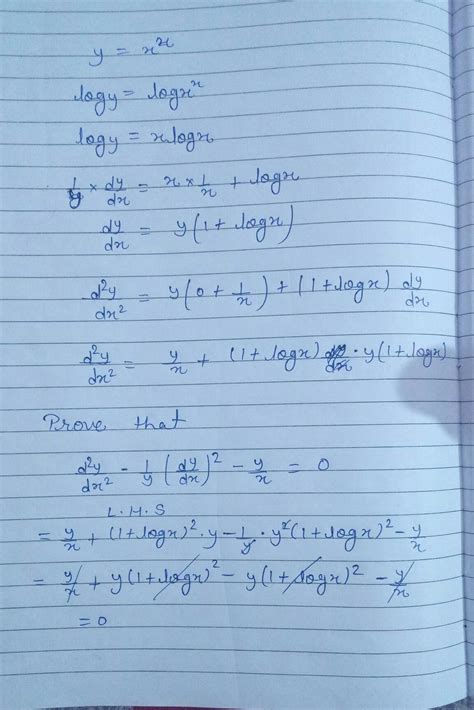 y = x^x
log y = log x^x
log y = x log x
1/y × dy/dx = x × 1/x + log x
dy/dx = y(1 + log x)
d²y/dx² = y(0 + 1/x) + (1 + log x) dy/dx
d²y/dx² = y/x + (1 + log x) · y(1 + log x)
Prove that
d²y/dx² - 1/y (dy/dx)² - y/x = 0
L.H.S
= y/x + (1 + log x)² · y - 1/y · y²(1 + log x)² - y/x
= y/x + y(1 + log x)² - y(1 + log x)² - y/x
= 0